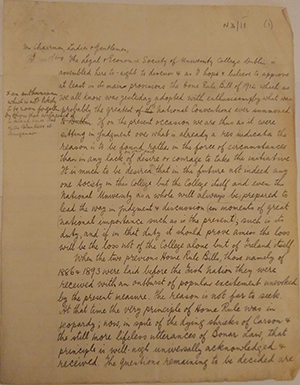 (1)
Mr Chairman, Ladies & Gentlemen,
The Legal & Economic Society of University College Dublin is
assembled here to-night to discuss & as I hope & believe to approve
at least in its main provisions the Home Rule Bill of 1912 which as
we all know was yesterday adopted with enthusiasm by what was
probably the greatest of the National Conventions ever summoned
in Dublin. If on the present occasion we are thus as it were
sitting in judgment over what is already a res iudicata the
reason is to be found rather in the force of circumstances
than in any lack of desire or courage to take the initiative.
It is much to be desired that in the future not indeed any
one Society in this College but the College itself and even the
National University as a whole will always be prepared to
lead the way in judgment & discussion on moments of great
national importance such as is the present, such is its
duty, and if in that duty it should prove amiss the loss
will be the loss not of the College alone but of Ireland itself.
When the two previous Home Rule Bills, those namely of
1886 & 1893 were laid before the Irish Nation they were
received with an outburst of popular excitement unevoked
by the present measure. The reason is not far to seek.
At that time the very principle of Home Rule was in
jeopardy; now, in spite of the dying shrieks of Carson &
the still more lifeless utterances of Bonar Law, that
principle is well-nigh universally acknowledged &
received. The questions remaining to be decided are
x an enthusiasm
which is not likely
to be soon forgotten